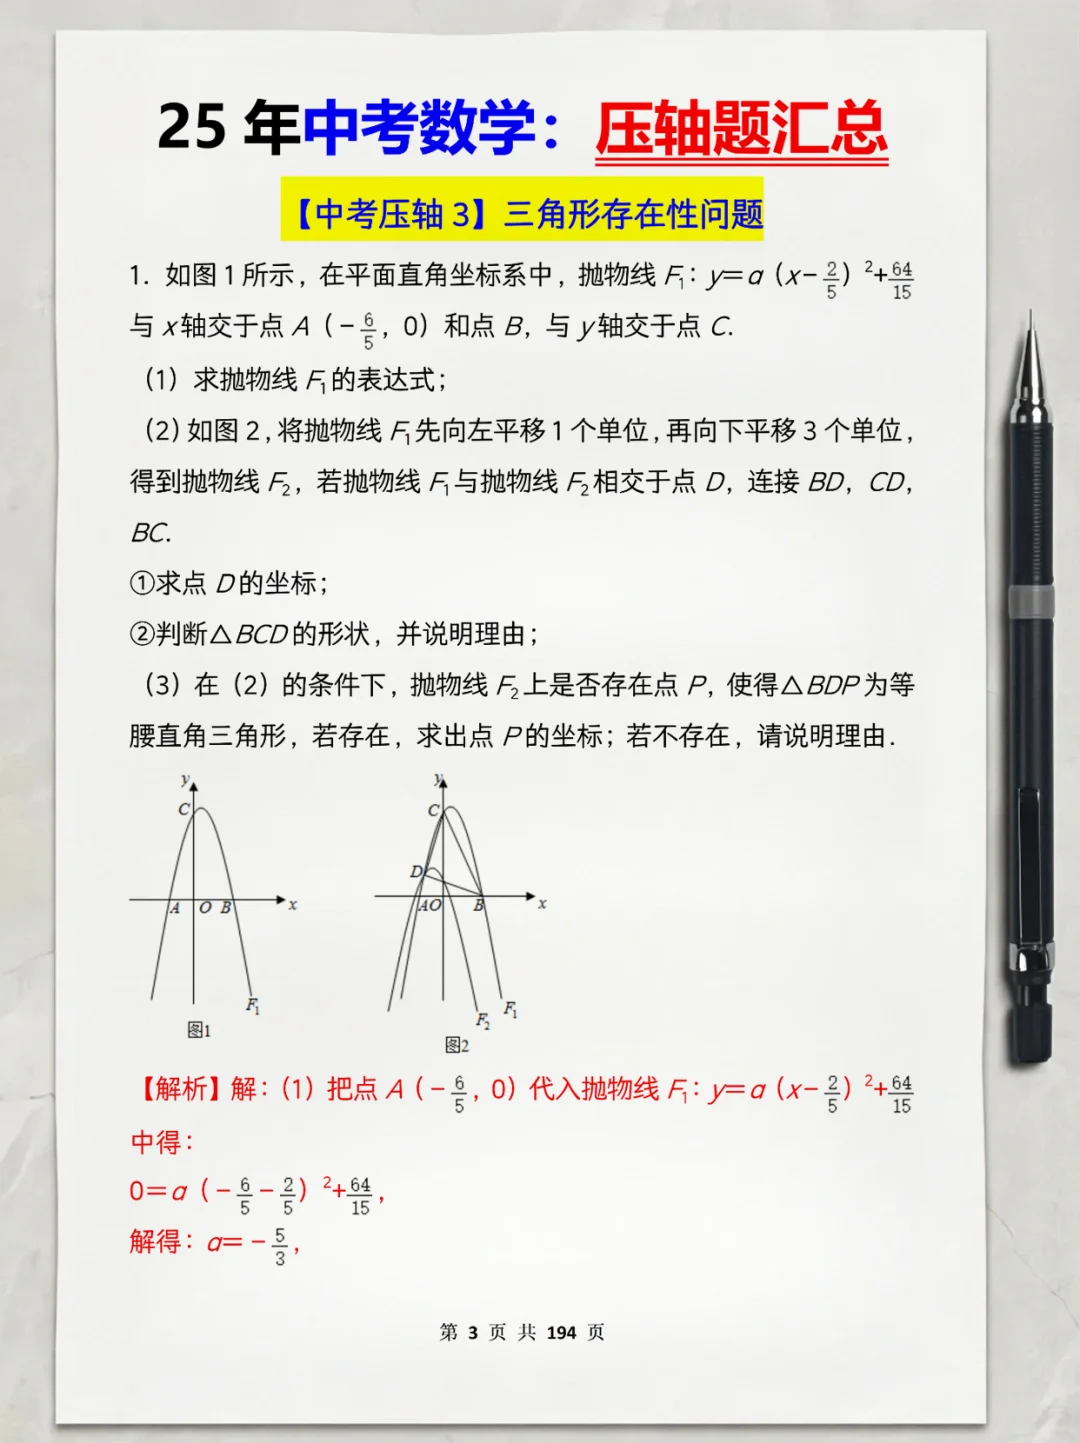 25 年中考数学：压轴题汇总
【中考压轴 3】三角形存在性问题
1. 如图 1 所示，在平面直角坐标系中，抛物线 F₁：y＝a（x－2/5）²+64/15
与 x 轴交于点 A（－6/5，0）和点 B，与 y 轴交于点 C．
（1）求抛物线 F₁的表达式；
（2）如图 2，将抛物线 F₁先向左平移 1 个单位，再向下平移 3 个单位，
得到抛物线 F₂，若抛物线 F₁与抛物线 F₂相交于点 D，连接 BD，CD，
BC．
①求点 D 的坐标；
②判断△BCD 的形状，并说明理由；
（3）在（2）的条件下，抛物线 F₂上是否存在点 P，使得△BDP 为等
腰直角三角形，若存在，求出点 P 的坐标；若不存在，请说明理由．
y
C
A O B x
F₁
图1
y
C
D
A O B x
F₂ F₁
图2
【解析】解：（1）把点 A（－6/5，0）代入抛物线 F₁：y＝a（x－2/5）²+64/15
中得：
0＝a（－6/5－2/5）²+64/15，
解得：a＝－5/3，
第 3 页 共 194 页